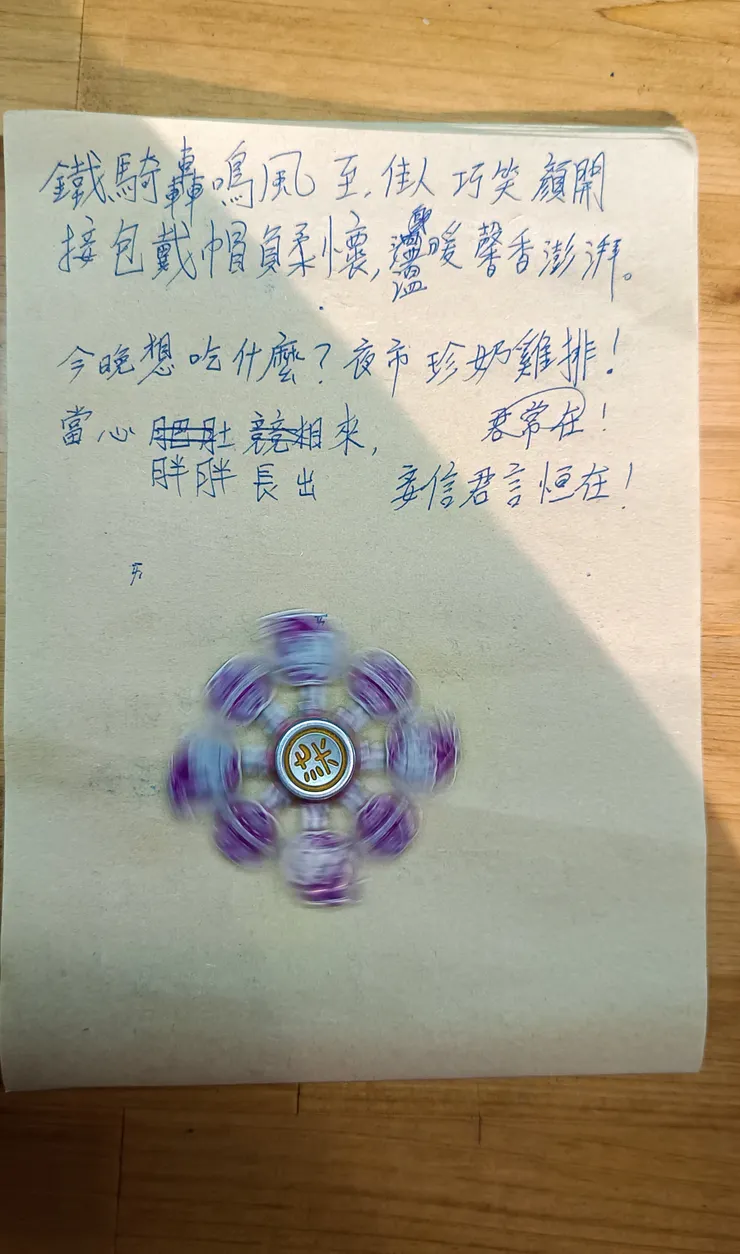 鐵騎轟鳴風至,佳人巧笑顏開
接包戴帽負柔懷,溫暖馨香澎湃。
今晚想吃什麼?夜市珍奶雞排!
當心肥肚競相來, 君常在!
胖胖長出 妾信君言恒在!